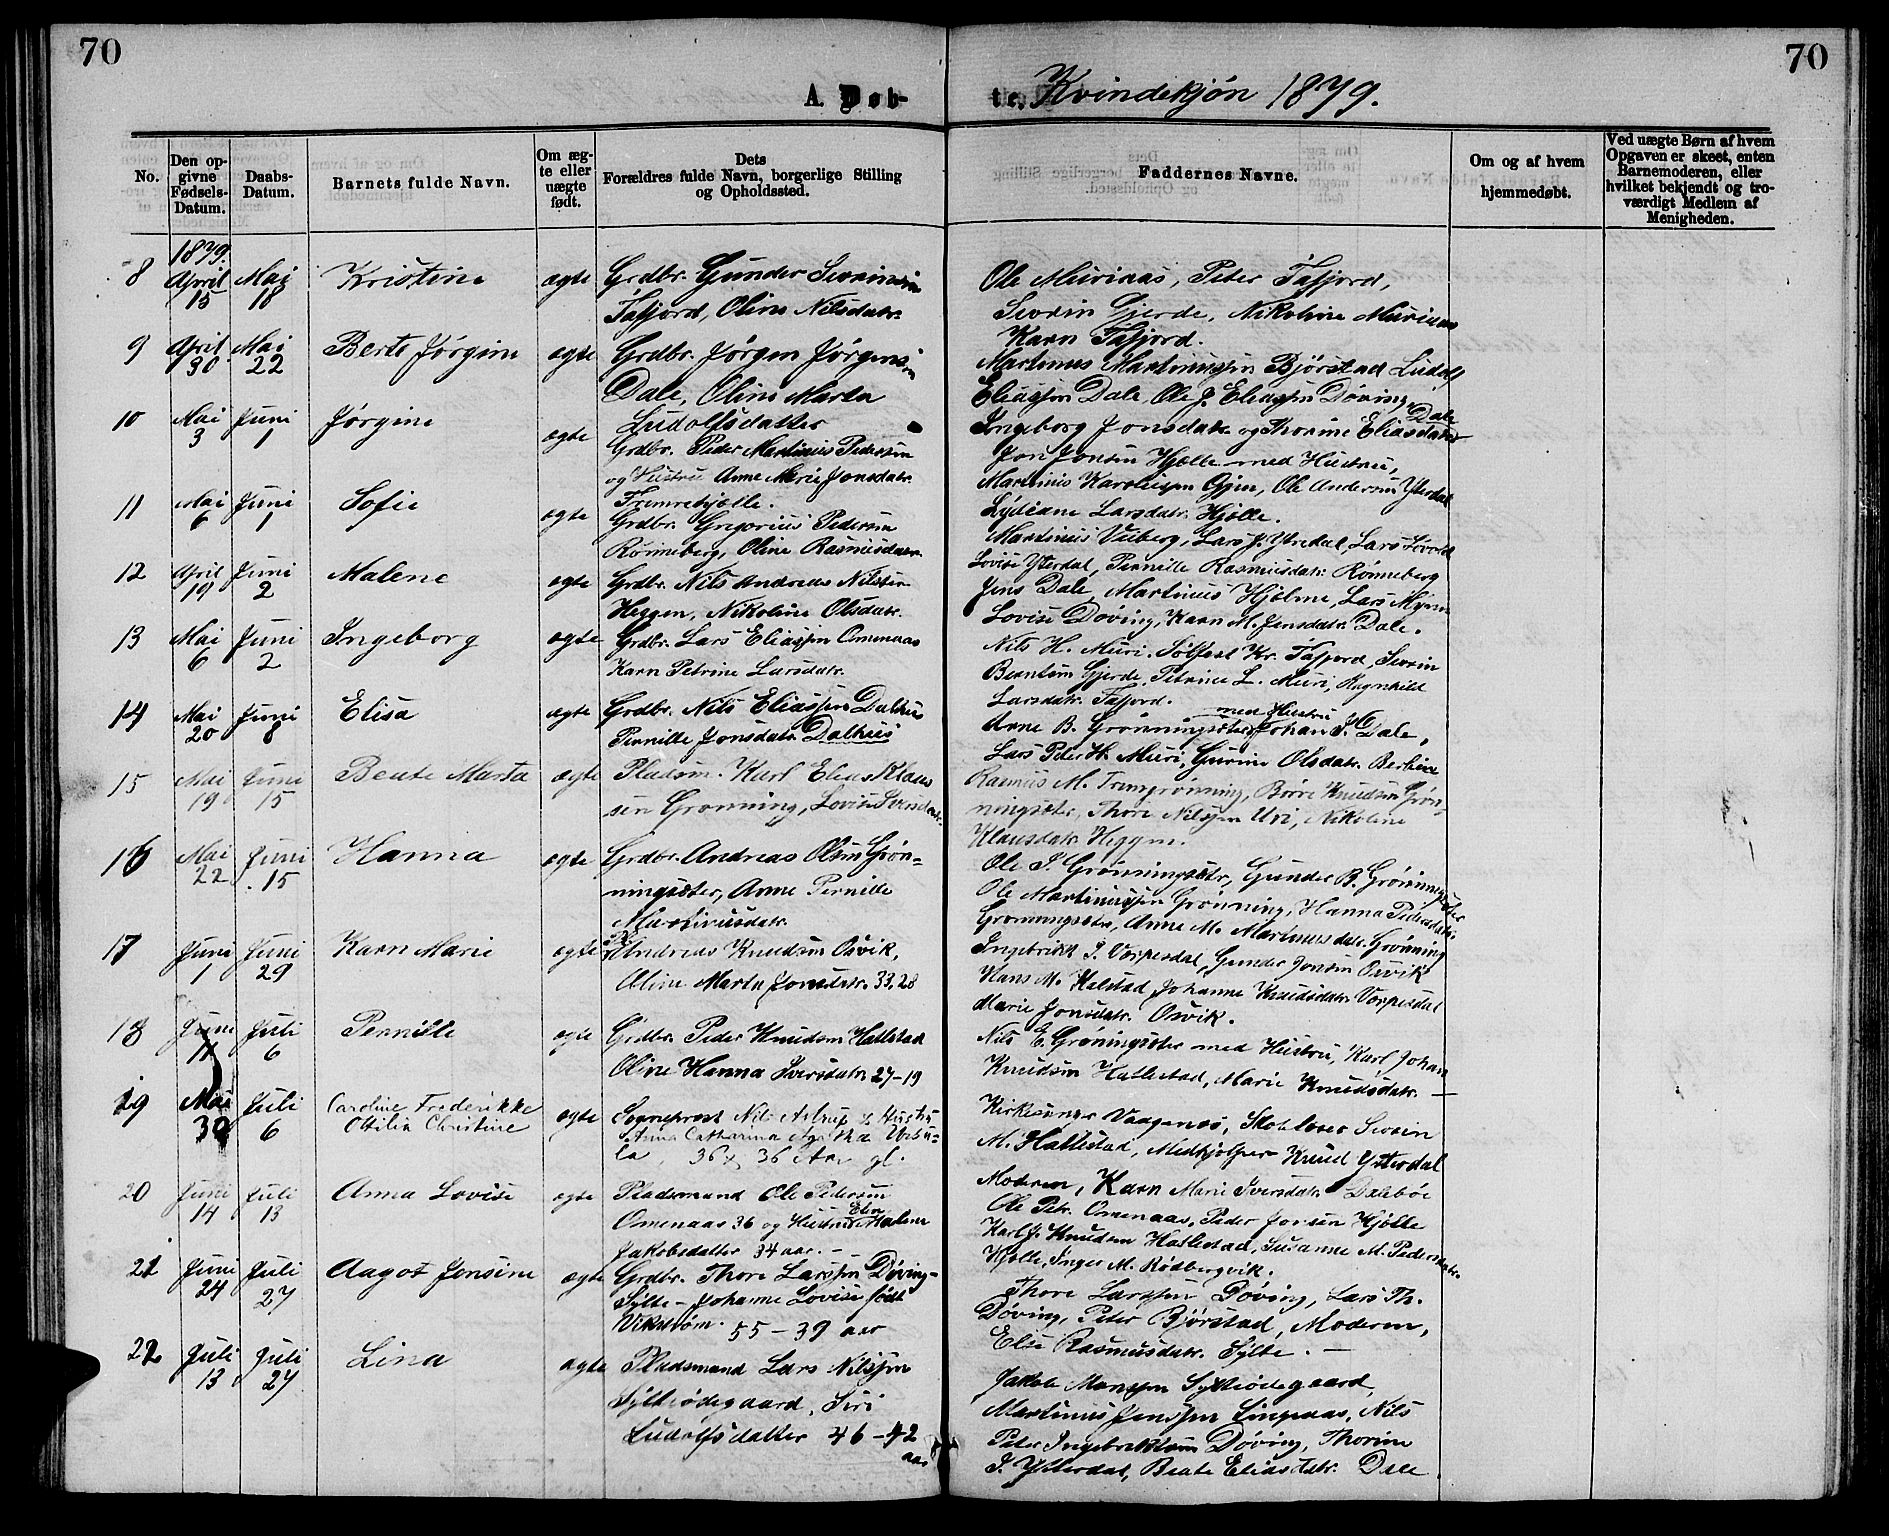 70
70
A. Døb-
te. Kvindekjøn 1879.
No.
Den op-
givne
Fødsels-
Datum.
Daabs-
Datum.
Barnets fulde Navn.
Om æg-
te eller
uægte
født.
Dets
Forældres fulde Navn, borgerlige Stilling
og Opholdssted.
Faddernes Navne.
Om og af hvem
hjemmedøbt.
Ved uægte Børn af hvem
Opgaven er skeet, enten
Barnemoderen, eller
hvilket bekjendt og tro-
værdigt Medlem af
Menigheden.
1879.
8 April 15 Mai 18 Kristine ægte Grdbr. Gunder Sevrinsen
Tafjord, Oline Nilsdatr.
Ole Murinas, Peter Tafjord,
Sevrin Gjerde, Nikoline Murinas
Karn Tafjord.
9 April 30 Mai 22 Berte Jørgine ægte Grdbr. Jørgen Jørgensen
Dale, Oline Marta
Ludolfsdatter
Martinus Martinussen Bjørstad Ludolf
Eliassen Dale, Ole J. Eliassen Døving,
Ingeborg Jonsdatr. og Thorine Eliasdatr. Dale
10 Mai 3 Juni 1 Jørgine ægte Grdbr. Peder Martinus Pedersen
og Hustru Anne Marie Jonsdatr.
Fremrehjølle.
Jon Jonsen Hjølle med Hustru,
Martinus Karolussen Gjen, Ole Andersen Yterdal
Lydiane Larsdatr. Hjølle.
11 Mai 6 Juni 1 Sofie ægte Grdbr. Gregorius Pedersen
Rønneberg, Oline Rasmusdatr.
Martinus Veiberg, Lars J. Ytredal, Lars Løvold
Lovise Yterdal, Pernille Rasmusdatr. Rønneberg
12 April 19 Juni 2 Malene ægte Grdbr. Nils Andreas Nilsen
Heggen, Nikoline Olsdatr.
Jens Dale, Martinus Hjelme, Lars Myren
Lovise Døving, Karn M. Jensdatr. Dale.
13 Mai 6 Juni 2 Ingeborg ægte Grdbr. Lars Eliassen Omenaas
Karn Petrine Larsdatr.
Nils H. Muri. Sølfest Kr. Tafjord, Sevrin
Berntsen Gjerde, Petrine L. Muri, Ragnhild
Larsdatr. Tafjord.
14 Mai 20 Juni 8 Elisa ægte Grdbr. Nils Eliassen Dalhus
Pernille Jonsdatr. Dalhus
Arne B. Grønningsæter med Hustru Johan J. Dale,
Lars Peter H. Muri, Gurine Olsdatr. Berline
15 Mai 19 Juni 15 Beate Marta ægte Pladsm. Karl Elias Klaus
sen Grønning, Lovise Iversdatr.
Rasmus M. Fremgrønning, Børre Knudsen Grøn-
ningsæter, Thore Nilssen Uri, Nikoline
Klausdatr. Heggen.
16 Mai 22 Juni 15 Hanna ægte Grdbr. Andreas Olsen Grøn-
ningsæter, Anne Pernille
Martinusdatr.
Ole I. Grønningsætr, Gunder B. Grønningsæter
Ole Martinussen Grønning, Hanna Pedersdatr.
Grønningsæter, Anne M. Martinusdatr. Grønning
17 Juni 1 Juni 29 Karn Marie ægte Andreas Knudsen Osvik,
Oline Marta Jonsdatr. 33, 28
Ingebrikt I. Vorpesdal, Gunder Jonsen Osvik
Hans M. Halstad Johanne Knudsdatr. Vorpesdal
Marie Jonsdatr. Osvik.
18 Juni 11 Juli 6 Pernille ægte Grdbr. Peder Knudsen Hallestad
Oline Hanna Iversdatr. 27-19
Nils E. Grøningsæter med Hustru, Karl Johan
Knudsen Hallestad, Marie Knudsdatr. —
19 Mai 30 Juli 6 Caroline Frederikke
Ottilia Christine ægte Sogneprest Nils Astrup og Hustru
Anna Catharina Agatha Ursu-
la, 36 og 36 Aar gl.
Kirkesanger Vaagenes, Skolelærer Sevrin
M. Hallestad, Medhjelper Knud Ytterdal
20 Juni 14 Juli 13 Anna Lovise ægte Pladsmand Ole Pedersen
Omenaas 36 og Hustru Elen Malene
Jakobsdatter 34 aar. —
Moderen, Karn Marie Iversdatr. Dalebøe
Ole Petr. Omenaas, Peder Jonsen Hjølle
Karl J. Knudsen Hallestad, Susanne M. Pedersdatr.
Hjølle, Inger M. Rødbergvik.
21 Juni 24 Juli 27 Aagot Jensine ægte Grdbr. Thore Larssen Døving-
Sylte - Johanne Lovise født
Vikstrøm. 55-39 aar
Thore Larssen Døving, Lars Th.
Døving, Peter Bjørstad, Moderen,
Else Rasmusdatr. Sylte. —
22 Juli 13 Juli 27 Lina ægte Pladsmand Lars Nilssen
Sylteødegaard, Siri
Ludolfsdatter 46-42
aar
Jakob Monssen Sylteødegaard,
Martinus Jenssen Lingeaas, Nils
Peter Ingebrektsen Døving, Thorine
I. Ytterdal, Beate Eliasdatr. Dale